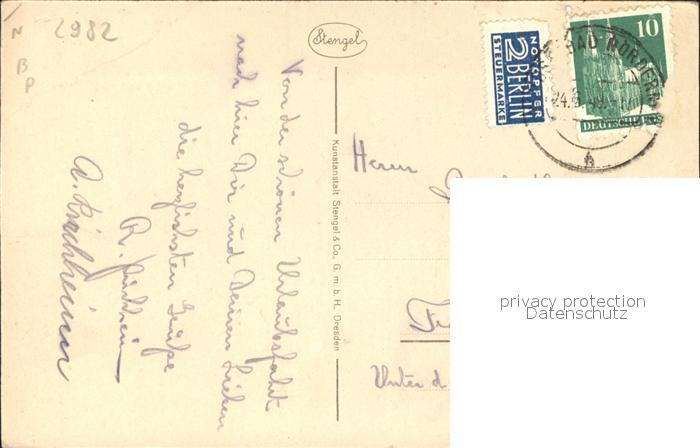 2982
N
B
P
Stengel
Von der schönen Urlaubsfahrt
nach hier Dir und Deinen Lieben
die herzlichsten Grüße
R.
A. Kirchheimer
Kunstanstalt Stengel & Co., G. m. b. H., Dresden
NOTOPFER
2 BERLIN
STEUERMARKE
10
DEUTSCHE POST
BAD
24.
Herrn
Unter d
privacy protection
Datenschutz